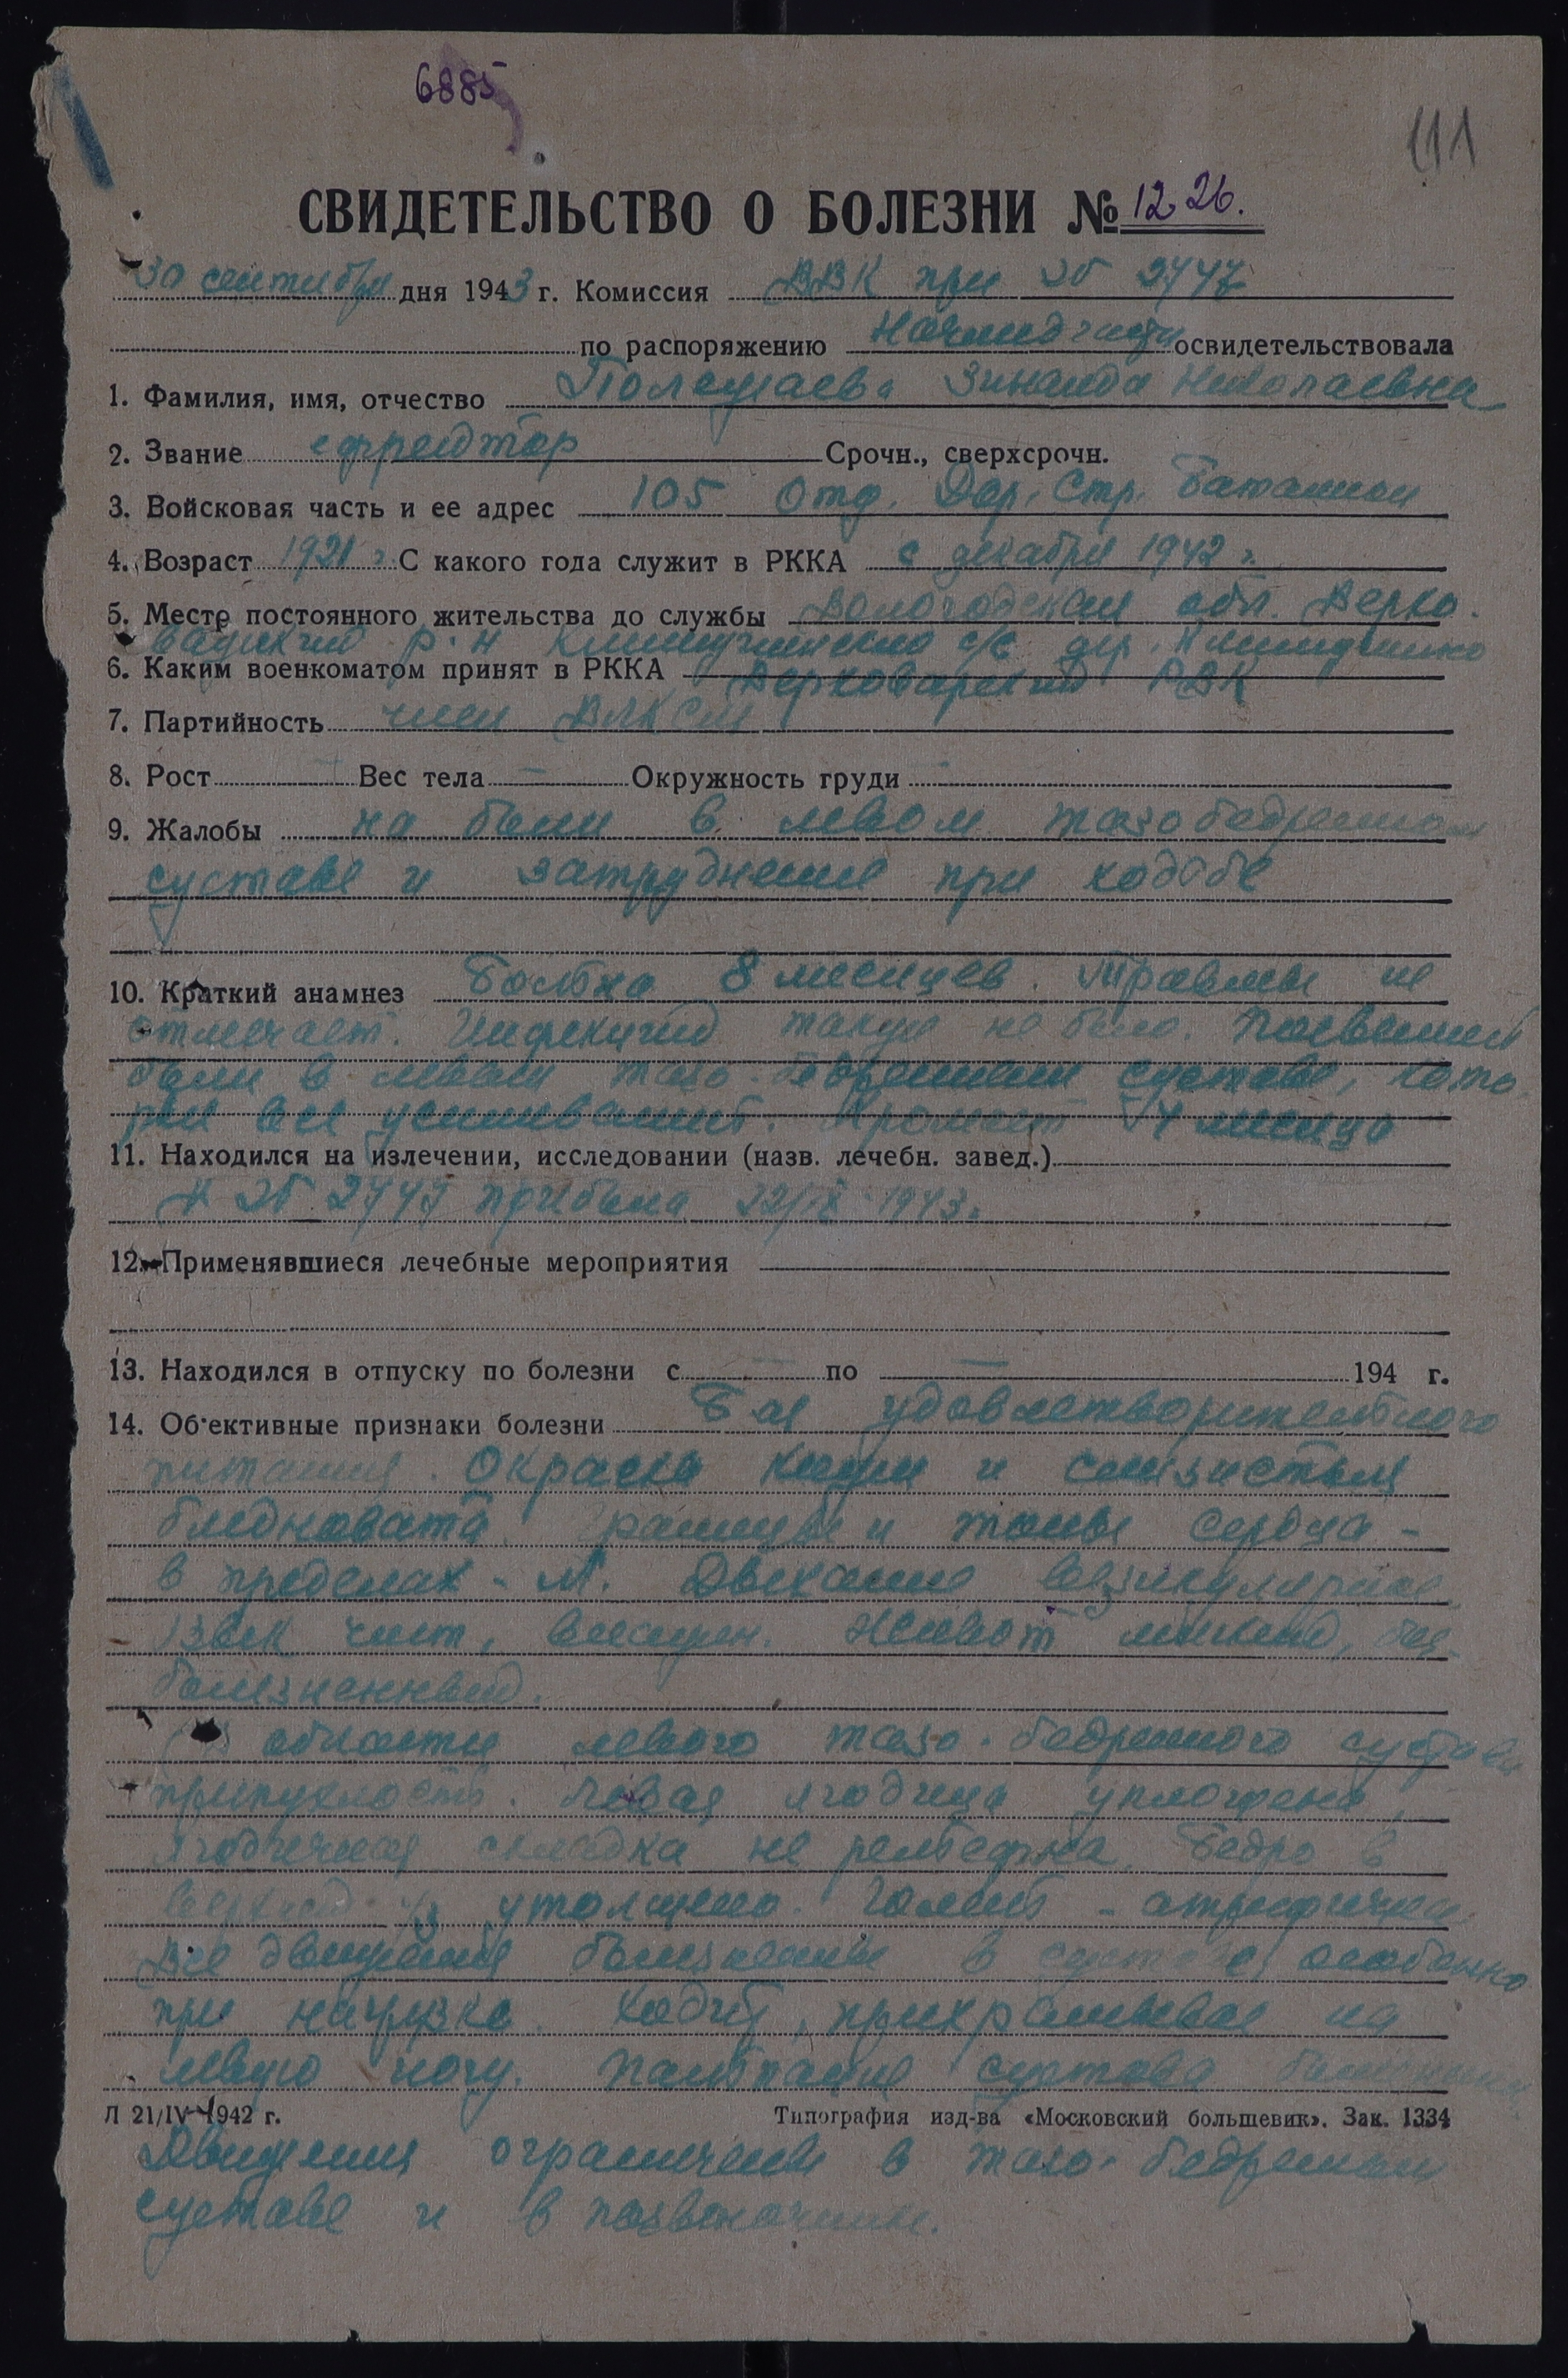 6885
111
СВИДЕТЕЛЬСТВО О БОЛЕЗНИ № 1226.
30 сентября дня 1943 г. Комиссия ВВК при ЭГ 2747
по распоряжению освидетельствовала
1. Фамилия, имя, отчество Зинаида Николаевна
2. Звание ефрейтор Срочн., сверхсрочн.
3. Войсковая часть и ее адрес 105 Отд. Дор. Стр. Батальон
4. Возраст 1921 г. С какого года служит в РККА с декабря 1942 г.
5. Место постоянного жительства до службы Вологодская обл. Верхо-
важский р-н с/с дер.
6. Каким военкоматом принят в РККА Верховажский РВК
7. Партийность член ВЛКСМ
8. Рост — Вес тела — Окружность груди —
9. Жалобы на боли в левом тазобедренном
суставе и затруднение при ходьбе
10. Краткий анамнез Больна 8 месяцев. Травмы не
отмечает. Инфекций также не было. Появились
боли в левом тазо-бедренном суставе, кото-
рые все усиливались. Хромает 4 месяца
11. Находился на излечении, исследовании (назв. лечебн. завед.)
В ЭГ 2747 прибыла 22/IX 1943 г.
12. Применявшиеся лечебные мероприятия
13. Находился в отпуску по болезни с — по — 194 г.
14. Об'ективные признаки болезни Б-ая удовлетворительного
питания. Окраска кожи и слизистых
бледновата. Границы и тоны сердца -
в пределах - N. Дыхание везикулярное
язык чист, влажен. Живот мягкий, без-
болезненный.
В области левого тазо-бедренного сустава
припухлость. Левая ягодица уплощена,
ягодичная складка не рельефна. Бедро в
верхней 1/3 утолщено. Голень - атрофична.
Все движения болезненны в суставе, особенно
при нагрузке. Ходит, прихрамывая на
левую ногу. Пальпация сустава болезненна.
Л 21/IV-1942 г. Типография изд-ва «Московский большевик». Зак. 1334
Движения ограничены в тазо-бедренном
суставе и в позвоночнике.